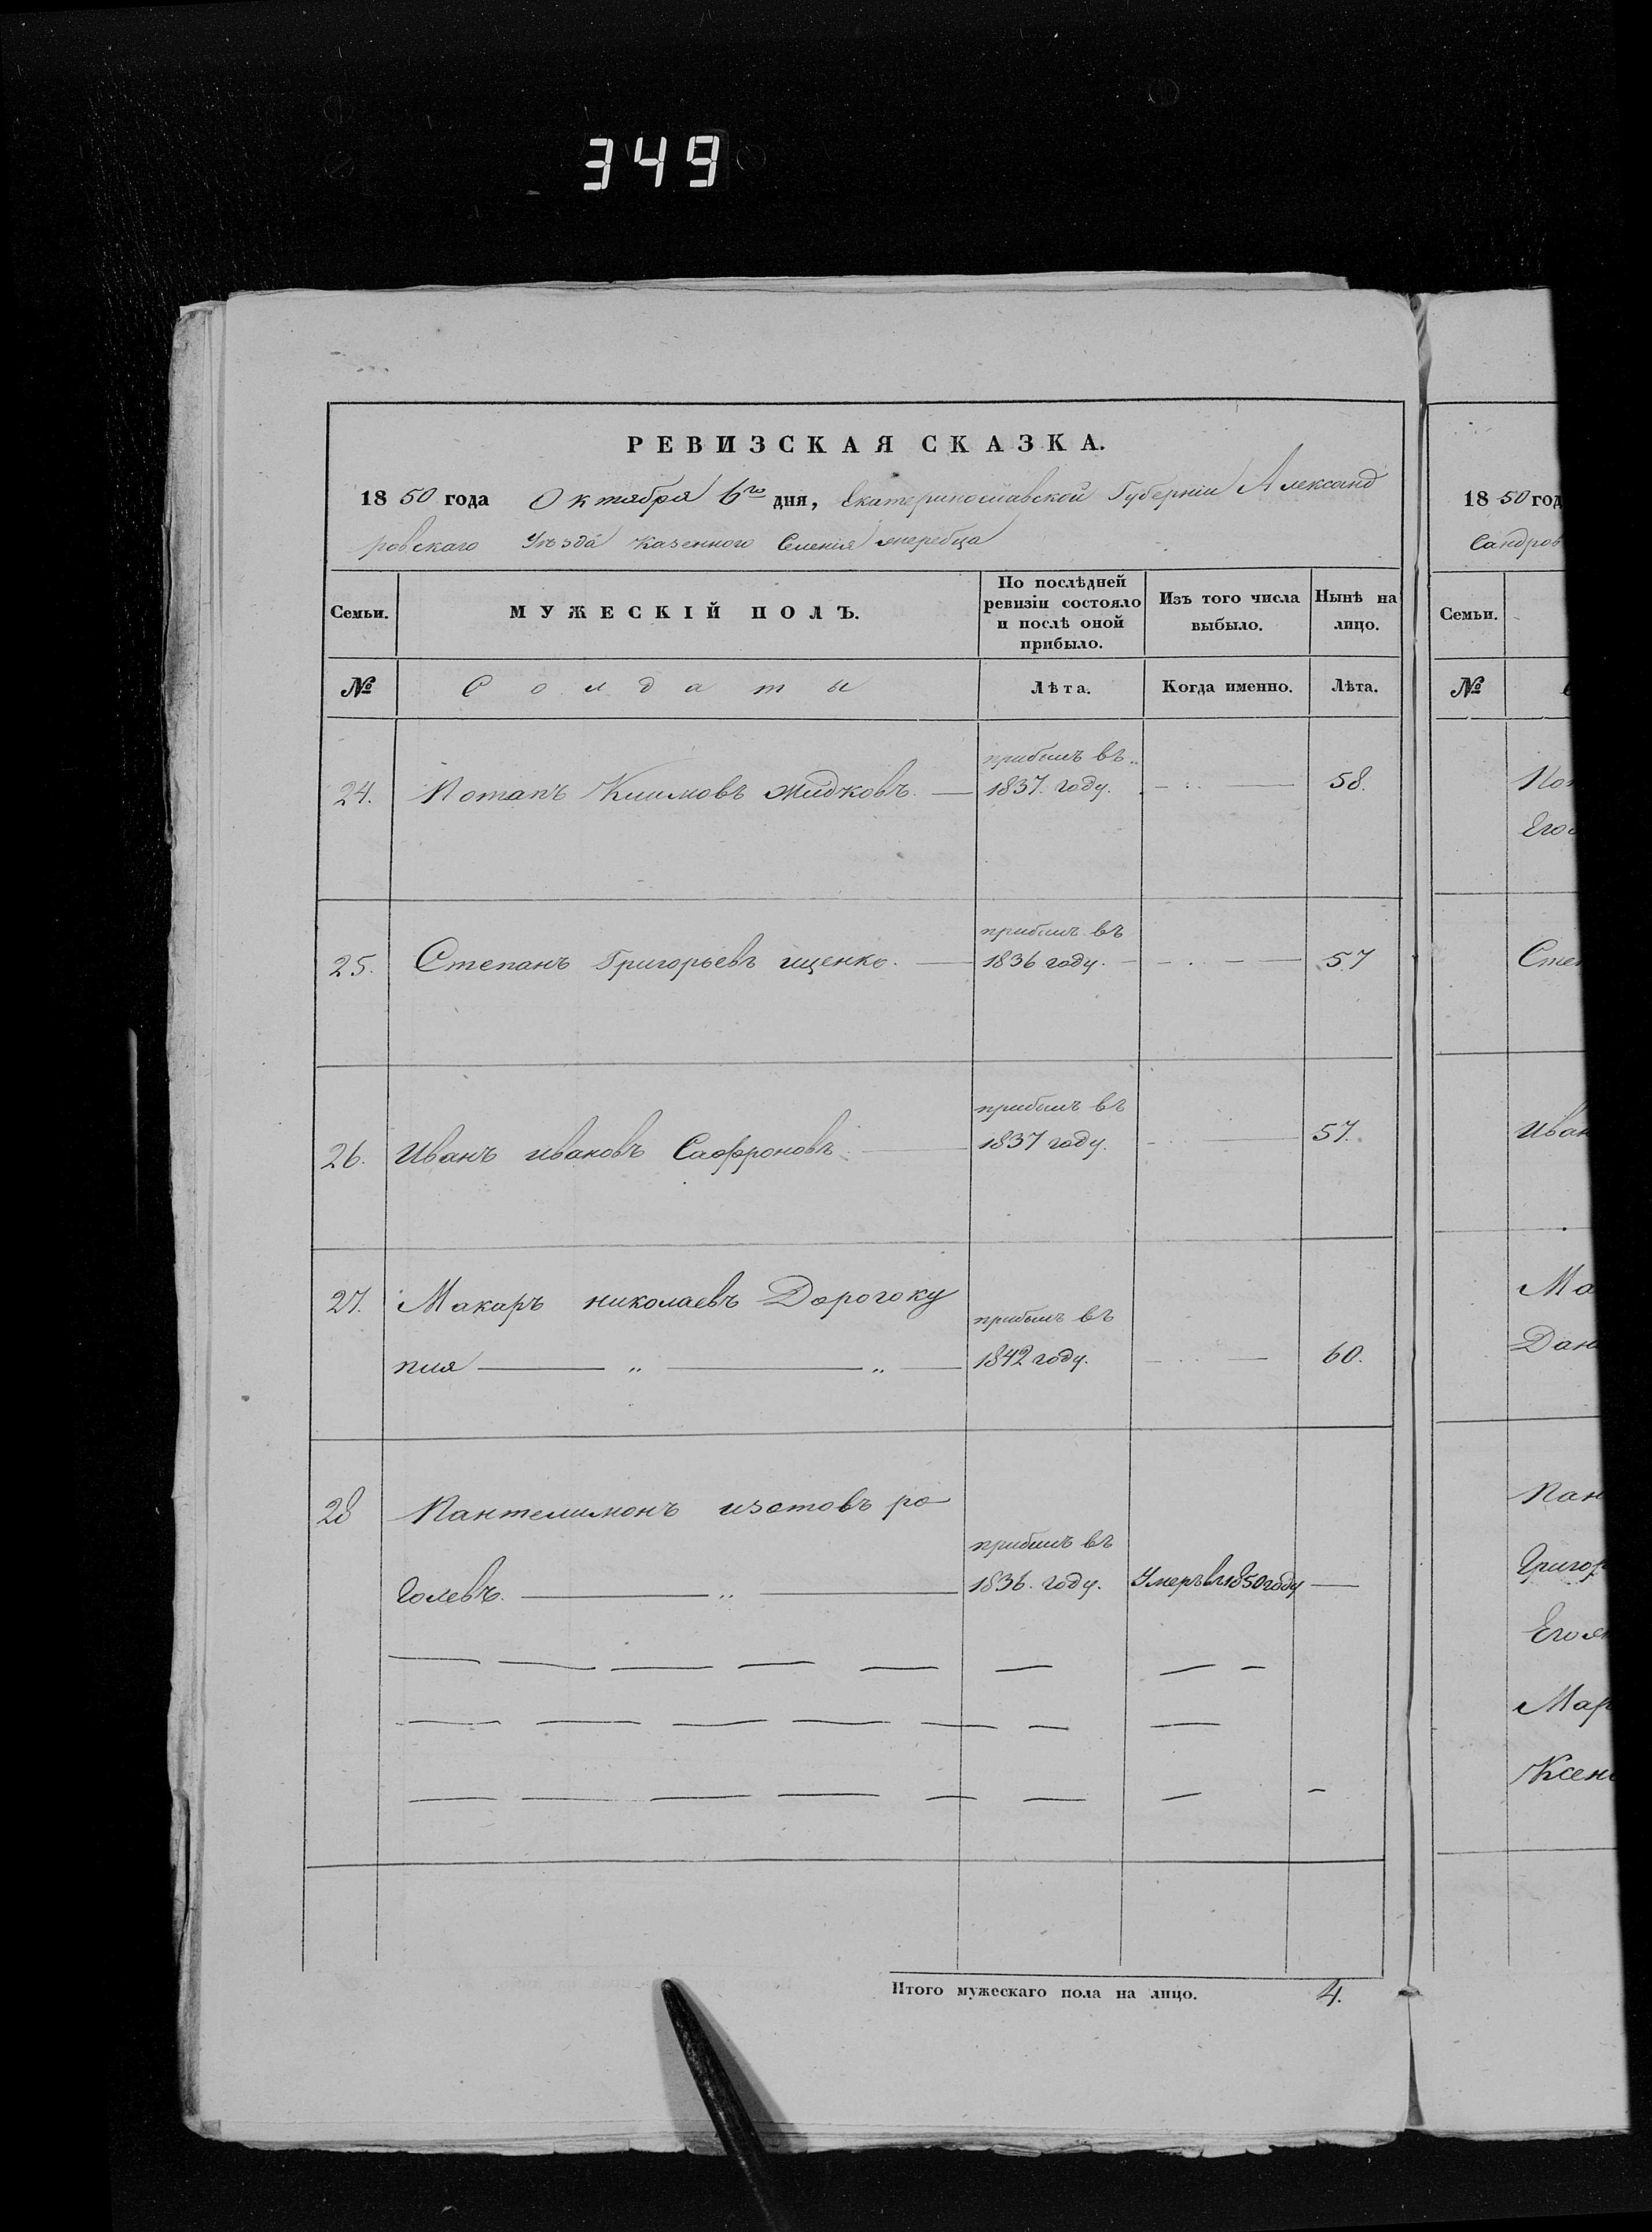 349
РЕВИЗСКАЯ СКАЗКА.
1850 года Октября 6го дня, Екатеринославской Губерніи Александ
ровскаго Уѣзда казенного Селенія жеребца
Семьи. МУЖЕСКІЙ ПОЛЪ. По послѣдней ревизіи состояло и послѣ оной прибыло. Изъ того числа выбыло. Нынѣ на лицо.
№ Солдаты Лѣта. Когда именно. Лѣта.
прибылъ въ
24. Потапъ Климовъ жидковъ. 1837. году. 58.
прибылъ въ
25. Степанъ Григорьевъ ищенко. 1836 году. 57
прибылъ въ
26. Иванъ ивановъ Сафроновъ 1837 году. 57.
27. Макаръ николаевъ Дорогоку
прибылъ въ
пля 1842 году. 60.
28 Пантелимонъ изотовъ ро
прибылъ въ
голевъ. 1836. году. Умеръ въ 1850 году
Итого мужескаго пола на лицо. 4.
18 50 год
Сандров
Семьи.
№
Пот
Его
Сте
Иван
Ма
Дан
Пан
Григор
Его
Мар
Ксен